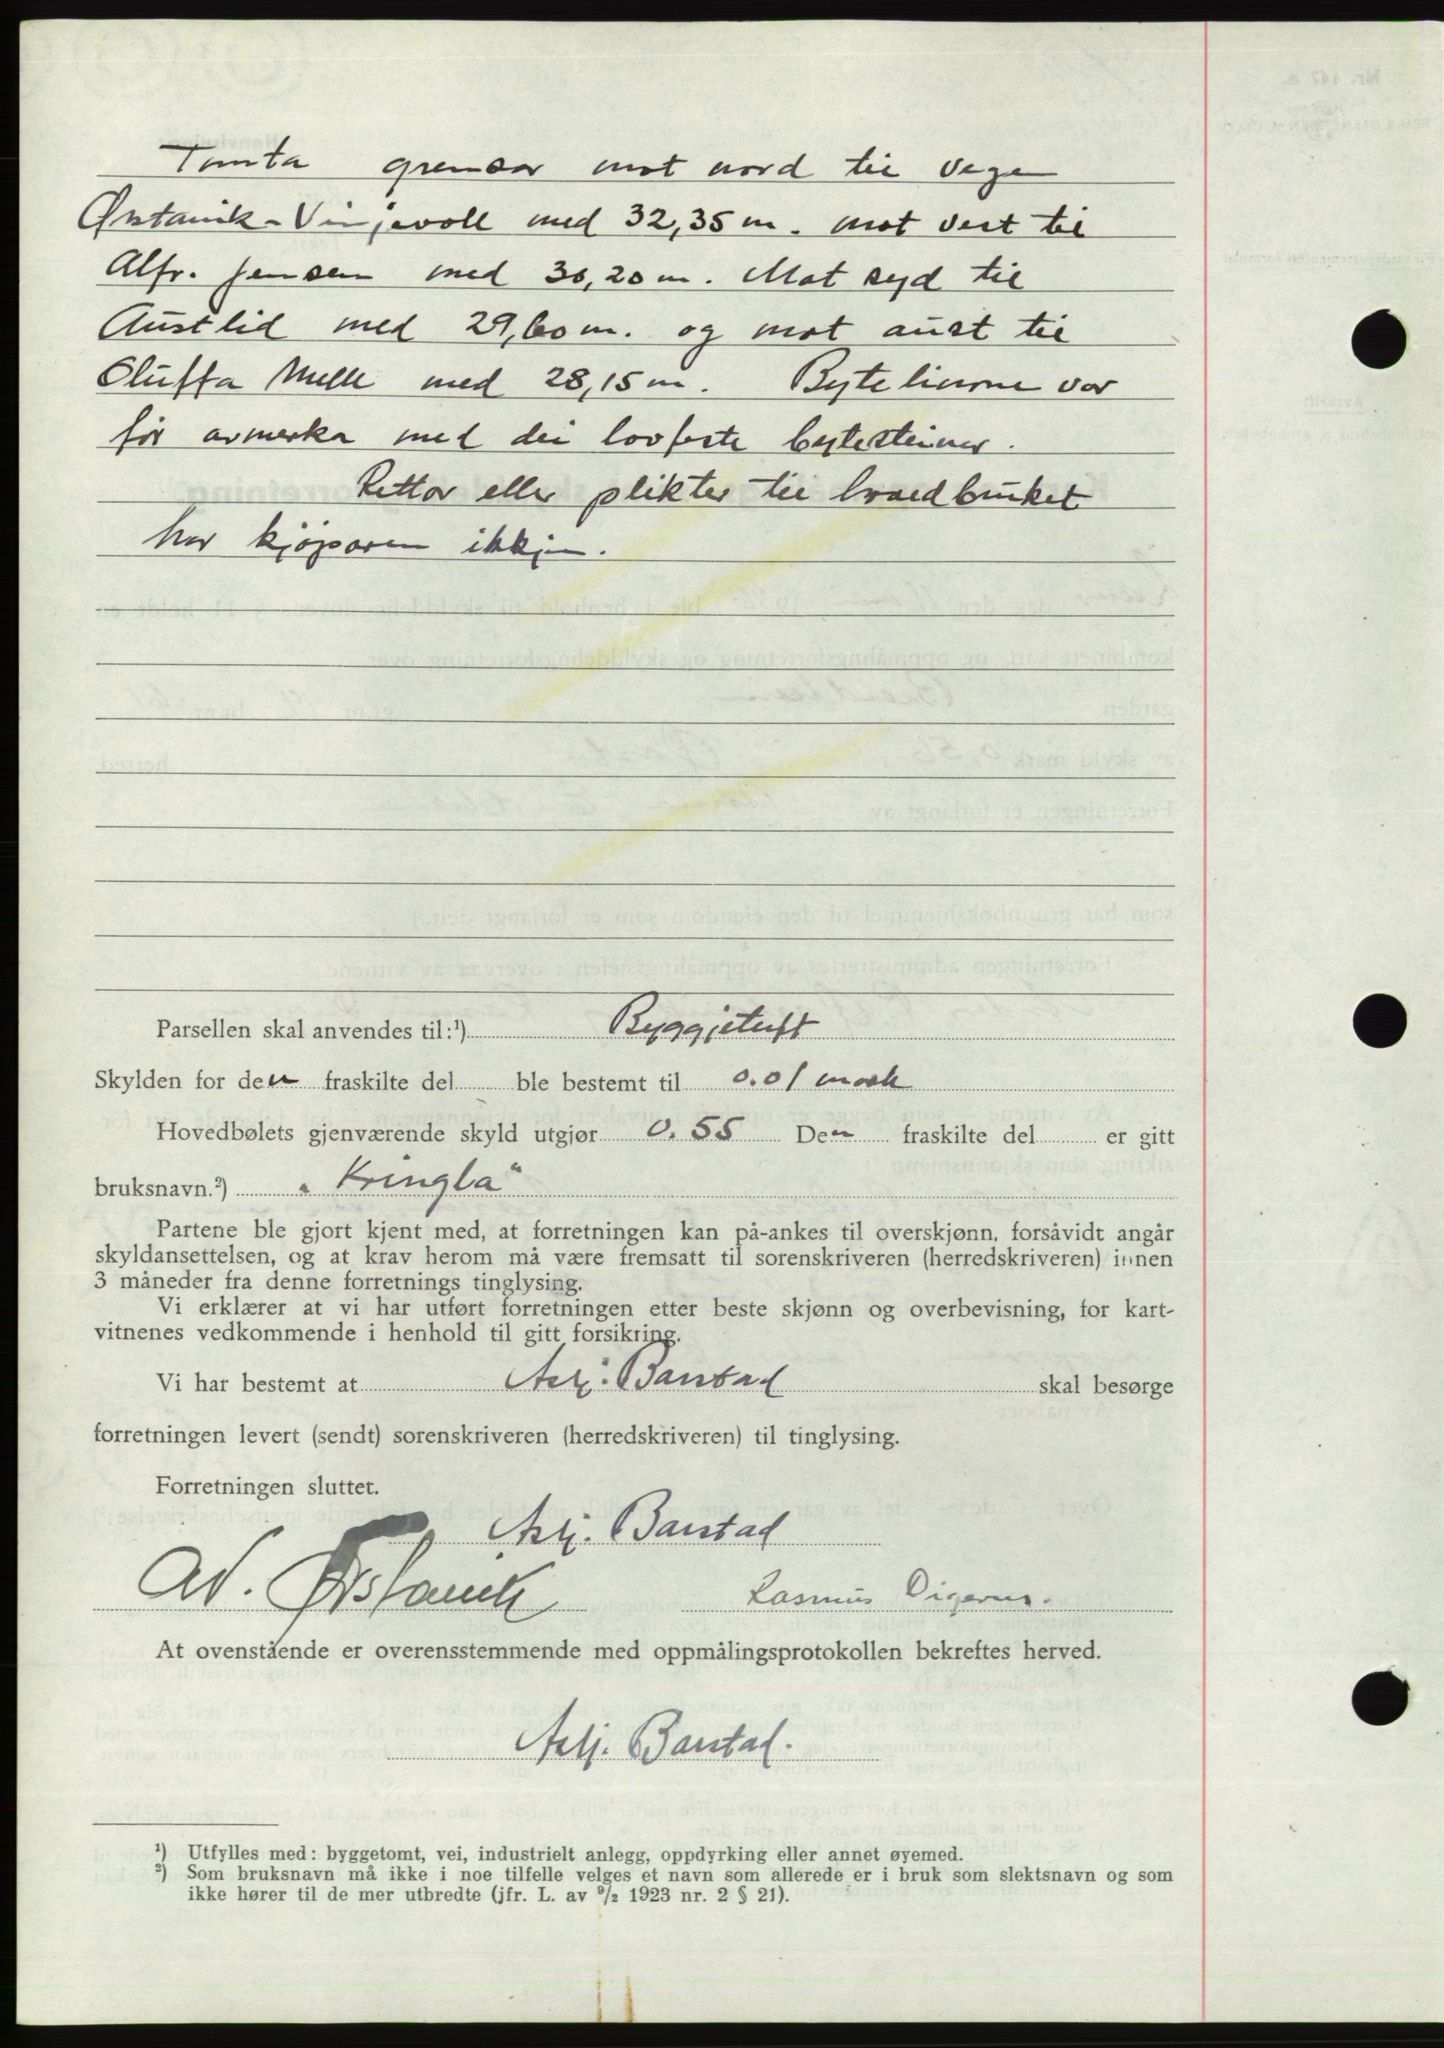 Tomta grensar mot nord til vegen
Ørstavik-Vinjevoll med 32,35 m. mot vest til
Alfr. Jensen med 30,20 m. Mot syd til
Austlid med 29,60 m. og mot aust til
Oluffa Melle med 28,15 m. Bytelinone var
før avmerka med dei lovfeste bytesteiner.
Rettar eller plikter til hovedbruket
har kjøparen ikkje.
Parsellen skal anvendes til:¹) Byggjetuft
Skylden for den fraskilte del ble bestemt til 0.01 mark
Hovedbølets gjenværende skyld utgjør 0.55 Den fraskilte del er gitt
bruksnavn.²) „Kringla“
Partene ble gjort kjent med, at forretningen kan på-ankes til overskjønn, forsåvidt angår
skyldansettelsen, og at krav herom må være fremsatt til sorenskriveren (herredskriveren) innen
3 måneder fra denne forretnings tinglysing.
Vi erklærer at vi har utført forretningen etter beste skjønn og overbevisning, for kart-
vitnenes vedkommende i henhold til gitt forsikring.
Vi har bestemt at Aslj. Barstad skal besørge
forretningen levert (sendt) sorenskriveren (herredskriveren) til tinglysing.
Forretningen sluttet.
Aslj. Barstad
Ørstavik Rasmus Digernes.
At ovenstående er overensstemmende med oppmålingsprotokollen bekreftes herved.
Aslj. Barstad.
¹) Utfylles med: byggetomt, vei, industrielt anlegg, oppdyrking eller annet øyemed.
²) Som bruksnavn må ikke i noe tilfelle velges et navn som allerede er i bruk som slektsnavn og som
ikke hører til de mer utbredte (jfr. L. av ⁹/₂ 1923 nr. 2 § 21).